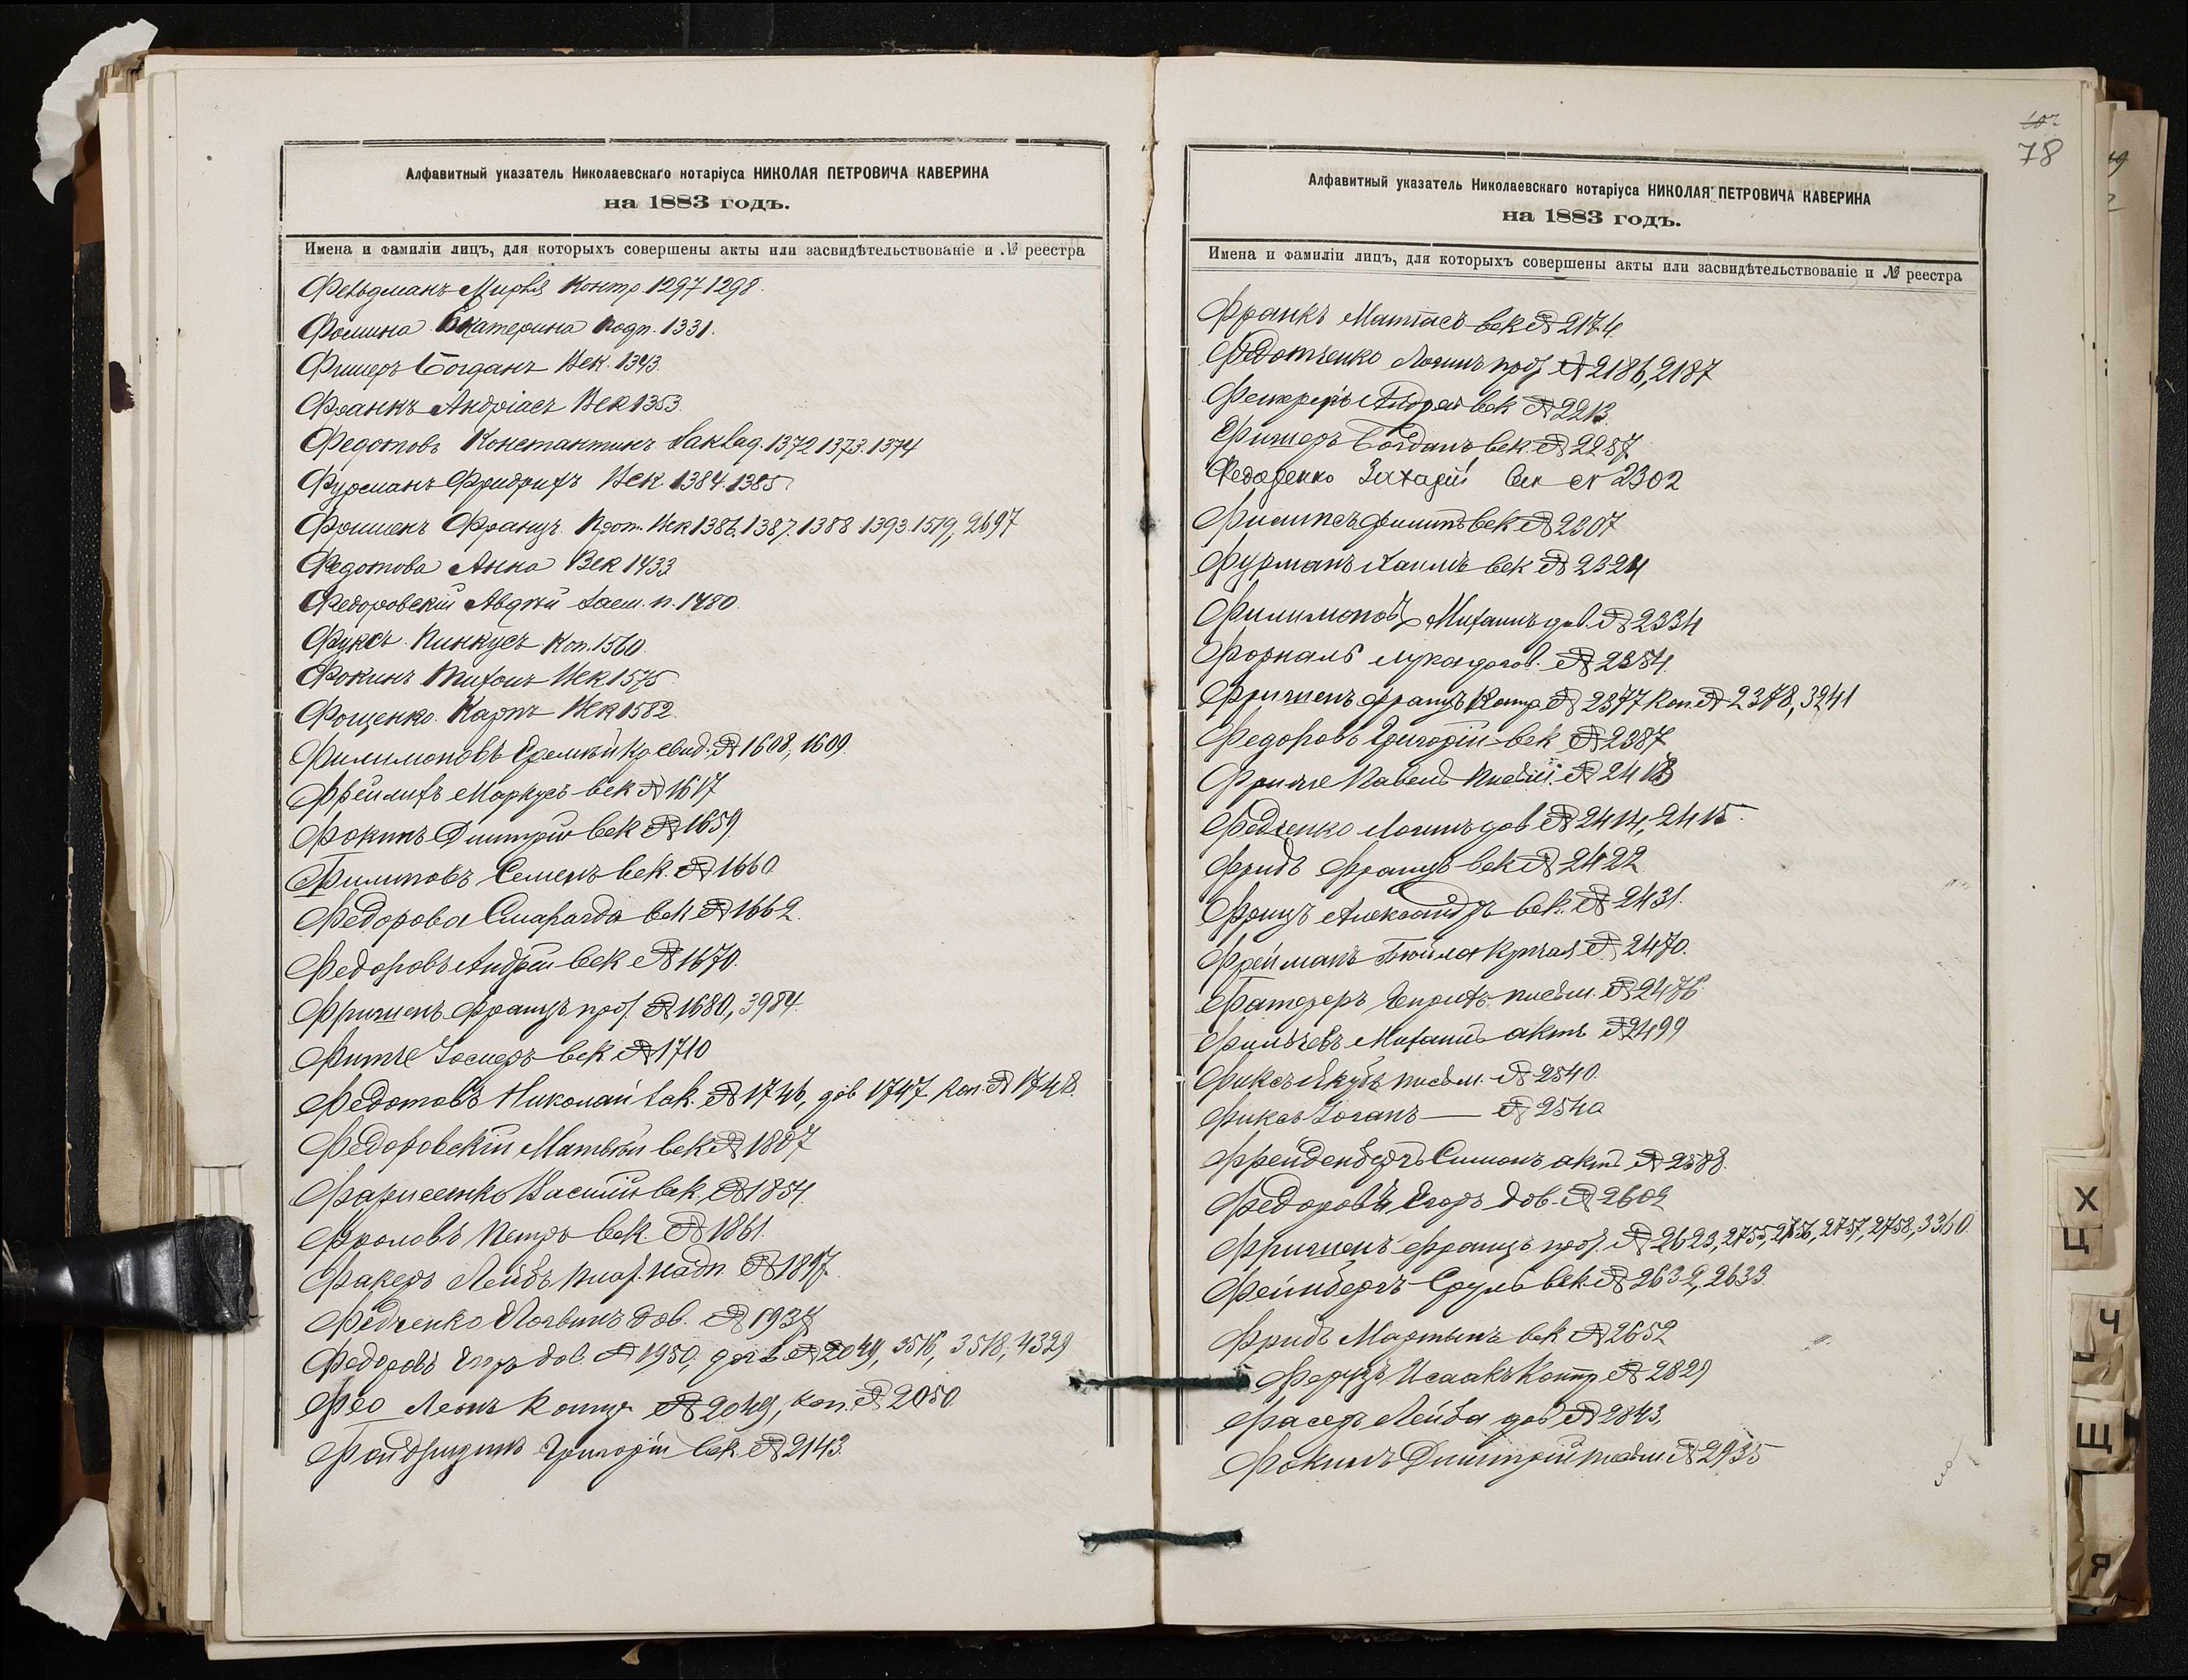 Алфавитный указатель Николаевскаго нотаріуса НИКОЛАЯ ПЕТРОВИЧА КАВЕРИНА
на 1883 годъ.
Имена и фамиліи лицъ, для которыхъ совершены акты или засвидѣтельствованіе и № реестра
Фельдманъ Мирля Контр. 1297 1298.
Фомина Екатерина подп. 1331.
Фишеръ Богданъ Век. 1343.
Франкъ Андріасъ Век 1353
Федотовъ Константинъ 1372 1373. 1374
Фурманъ Фридрихъ Век. 1384. 1385
Фришенъ Францъ. Прот. Век 1386. 1387. 1388 1393. 1519, 2697
Федотова Анна Век 1433
Федоровскій Авдѣй п. 1480.
Фуксъ Пинкусъ Коп. 1560.
Фокинъ Век 1575
Фощенко. Карпъ Век 1582.
Филимоновъ Еремѣй свид. № 1608, 1609.
Фрейлихъ Маркусъ век № 1617
Фокинъ Дмитрій век № 1659
Филиповъ Семенъ век. № 1660
Федорова Смарагда век № 1662.
Федоровъ Андрей век № 1670.
Фришенъ Францъ прот. № 1680, 3984.
Фитче век № 1710
Федотовъ Николай № 1746, дов 1747. Коп. № 1748.
Федоровскій Матвѣй век № 1807
Василій век. № 1854.
Фроловъ Петръ век. № 1861.
Факеръ Лейбъ надп. № 1897.
Федченко Логвинъ дов. № 1937
Федоровъ Егоръ дов. № 1950. № 2049, 3516, 3518, 4329
Фео Леонъ Контр № 2049, коп. № 2050
Григорій век. № 2143.
78
Алфавитный указатель Николаевскаго нотаріуса НИКОЛАЯ ПЕТРОВИЧА КАВЕРИНА
на 1883 годъ.
Имена и фамиліи лицъ, для которыхъ совершены акты или засвидѣтельствованіе и № реестра
Франкъ Матіасъ век № 2174.
Федотченко Логинъ № 2186, 2187
Андрей век № 2213.
Фишеръ Богданъ век. № 2257
Федоренко Захарій Век № 2302
Филипсъ Филипъ век № 2307
Фурманъ Хаимъ век № 2324
Филимоновъ Михаилъ дов. № 2334
Форналь Лука догов. № 2354.
Фришенъ Францъ Контр. № 2377 Коп. № 2378, 3241
Федоровъ Григорій век № 2387
Фриче Павелъ № 2413
Федченко Логинъ дов № 2414, 2415.
Фридъ Францъ век № 2422
Францъ Александръ век. № 2431.
Фрейманъ Бейла Купчая № 2470.
Генрихъ письм. № 2476.
Михаилъ актъ № 2499
Фиксъ Якубъ письм. № 2540.
Фиксъ Іоганъ — № 2540
Фрейденбергъ Симонъ актъ № 2588.
Федоровъ Егоръ Дов. № 2602
Фришенъ Францъ прот. № 2623, 2755, 2756, 2757, 2758, 3360
Фейнбергъ Сруль век. № 2632, 2633
Фридъ Мартынъ век № 2652
Исаакъ Контр № 2829
Фасеръ Лейба дов № 2843,
Фокинъ Дмитрій письм. № 2935
Х
Ц
Ч
Щ
Я